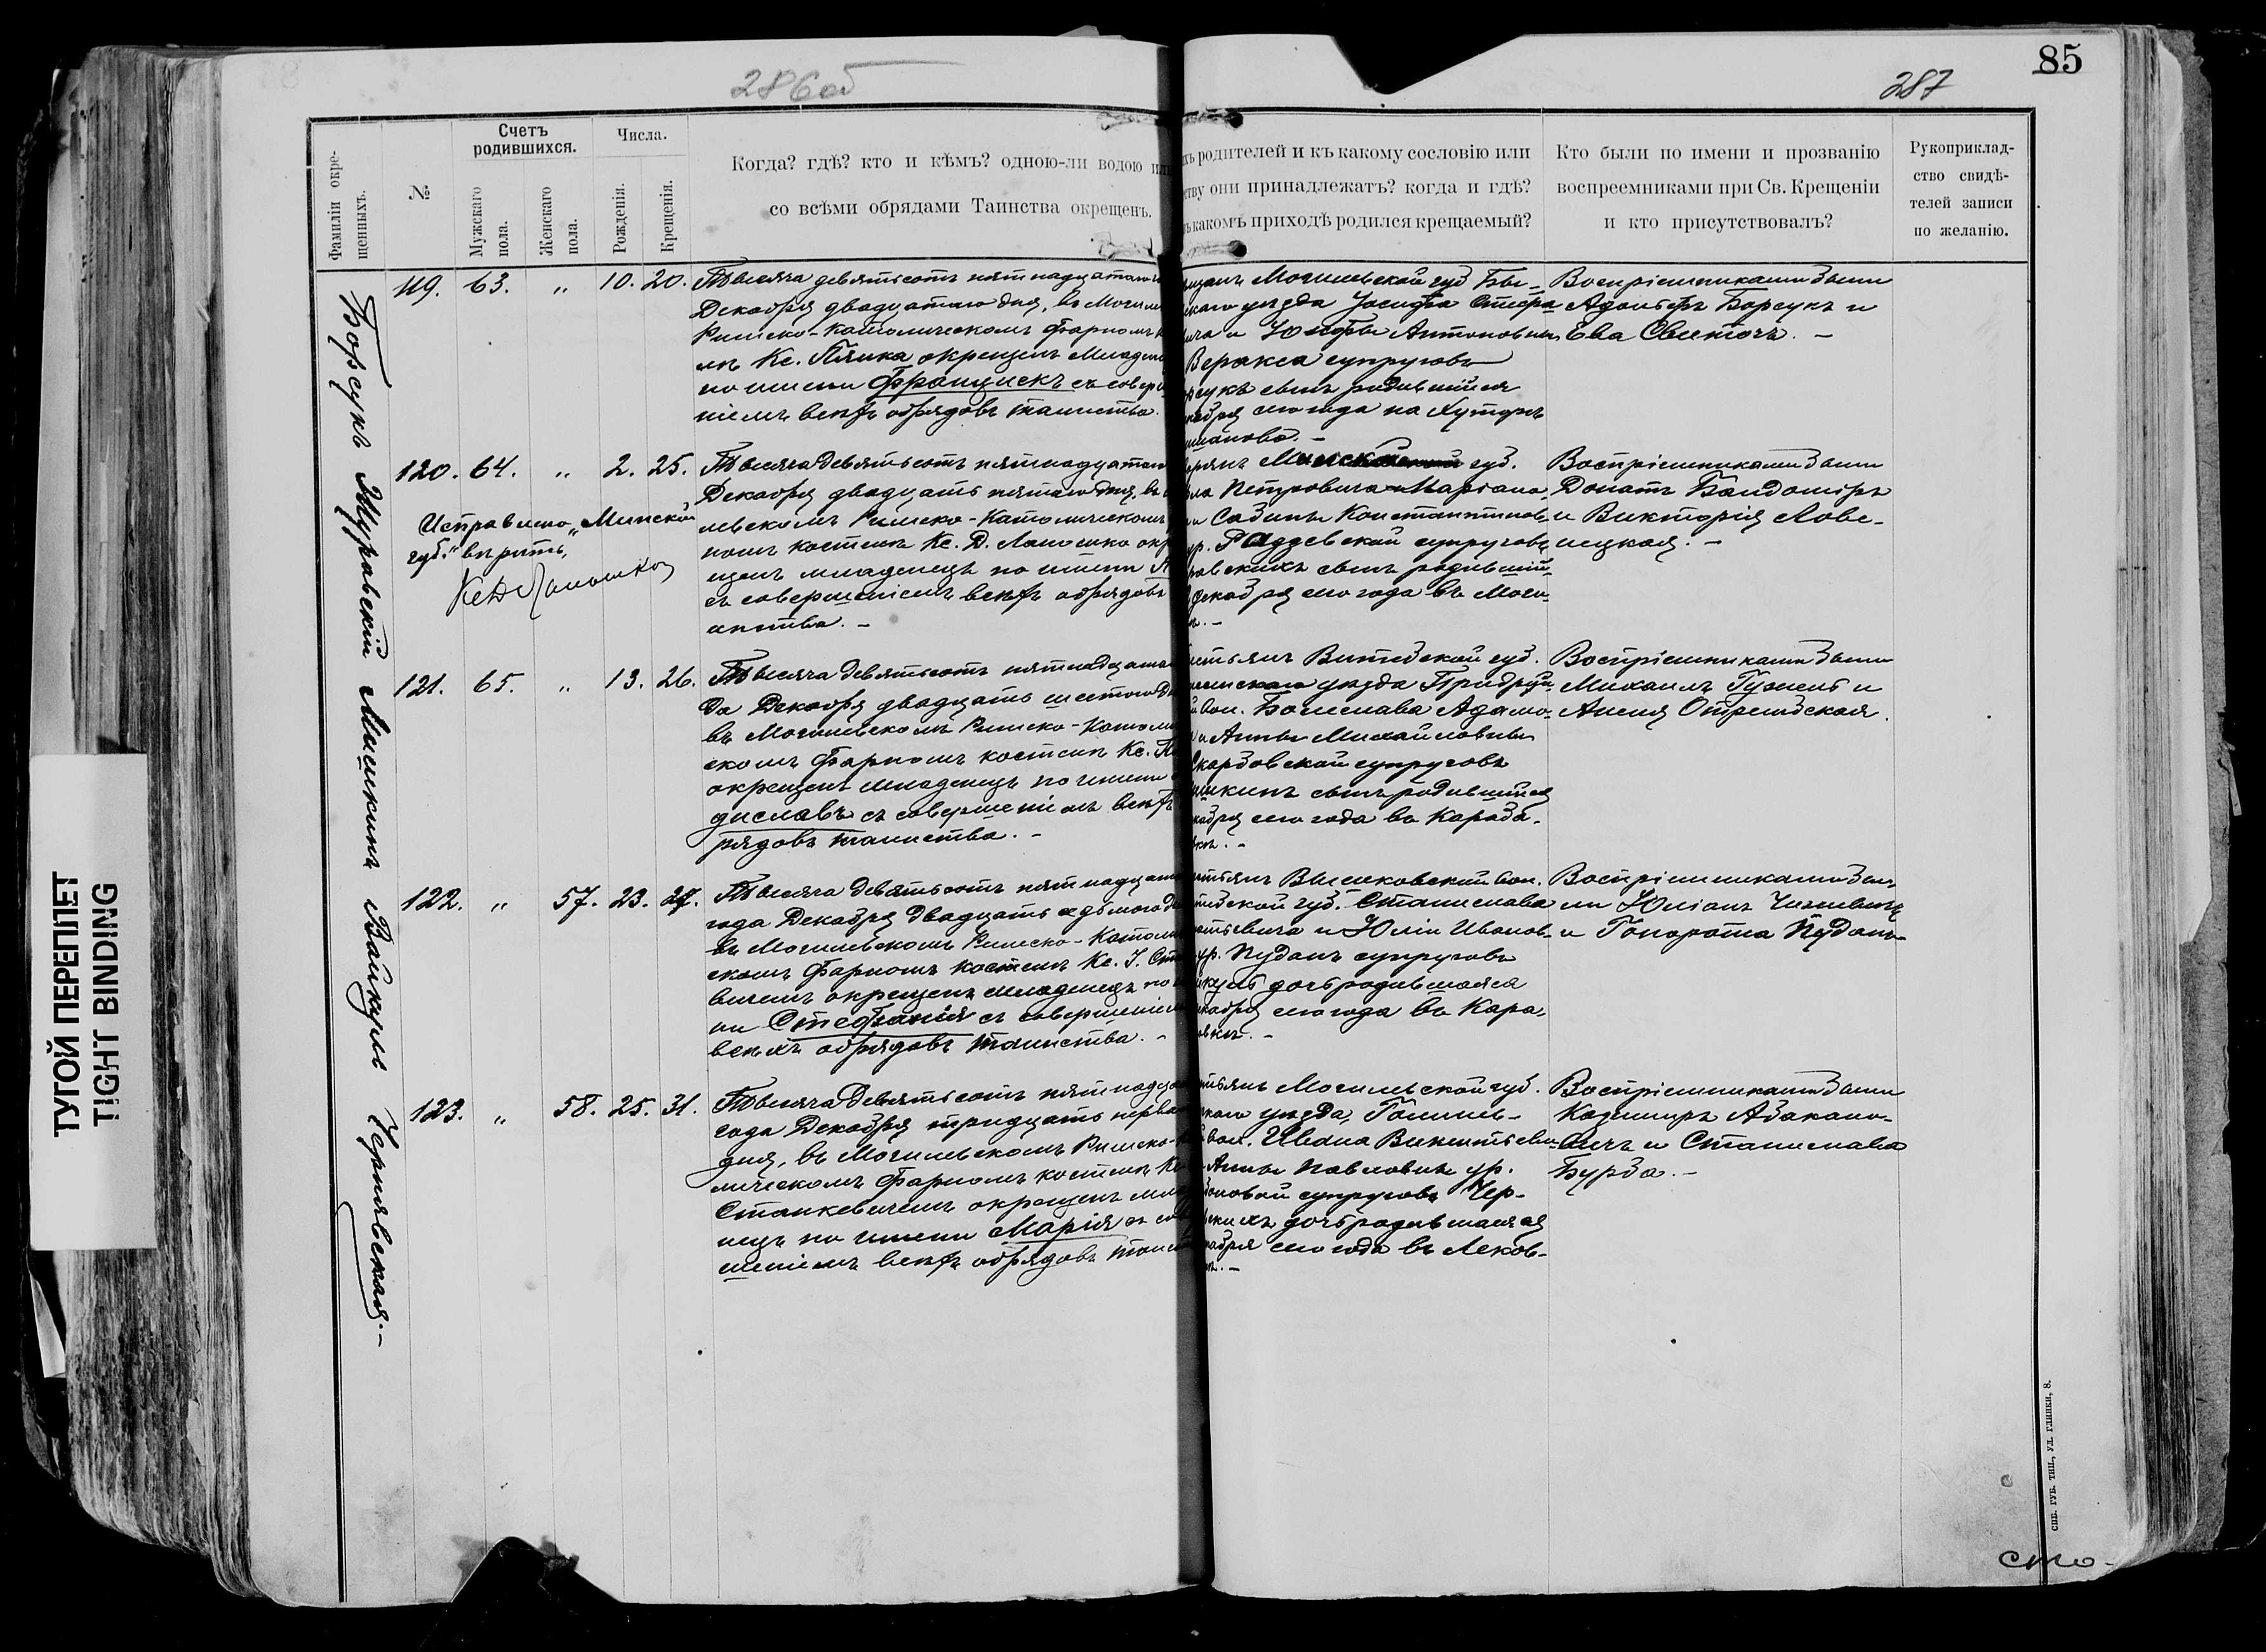 85
286об
287
Фамиліи окре-
щенныхъ.
№
Счетъ
родившихся.
Мужскаго
пола.
Женскаго
пола.
Числа.
Рожденія.
Крещенія.
Когда? гдѣ? кто и кѣмъ? одною-ли водою или
со всѣми обрядами Таинства окрещенъ.
родителей и къ какому сословію или
ству они принадлежатъ? когда и гдѣ?
какомъ приходѣ родился крещаемый?
Кто были по имени и прозванію
воспреемниками при Св. Крещеніи
и кто присутствовалъ?
Рукоприклад-
ство свидѣ-
телей записи
по желанію.
Борсукъ
119. 63. „ 10. 20.
Тысяча девятьсотъ пятнадцатаго
Декабря двадцатаго дня, въ Могилев
Римско-Католическомъ Фарномъ
лѣ Кс. окрещенъ Младен
по имени Францискъ съ соверше
ніемъ всѣхъ обрядовъ таинства.
Могилевской губ. Бы-
скаго уѣзда Іосифа Стефа
вича и Юзефы Антоновны
Веракса супруговъ
рсукъ сынъ родившійся
кабря сего года на хуторѣ
Воспріемниками были
Адольфъ Борсукъ и
Ева Свинточъ. -
Журавскій
120. 64. „ 2. 25.
Исправлено „Минской
губ." вѣрить,
Кс Д Лапошко
Тысяча девятьсотъ пятнадцатаго
Декабря двадцать пятаго дня, въ
левскомъ Римско-Католическомъ
номъ костелѣ Кс. Д. Лапошко окр
щенъ младенецъ по имени
съ совершеніемъ всѣхъ обрядовъ
инства. -
Минской губ.
ла Петровича Маріана
и Сабины Константиновн
ур. Раддевской супруговъ
равскихъ сынъ родившій-
Декабря сего года въ Моги-
Воспріемниками были
Донатъ Бандомiръ
и Викторія Лове-
нецкая. -
Мишкинъ
121. 65. „ 13. 26.
Тысяча девятьсотъ пятнадцатаго
да Декабря двадцать шестого дня
въ Могилевскомъ Римско-Католич
скомъ Фарномъ костелѣ Кс.
окрещенъ младенецъ по имени
диславъ съ совершеніемъ всѣхъ
рядовъ таинства. -
стьянъ Витебской губ.
уѣзда Придруй-
вол. Болеслава Адамо-
и Анны Михайловны
Скарбовской супруговъ
шкинъ сынъ родившійся
кабря сего года въ Караба-
Воспріемниками были
Михаилъ Гужель и
Анеля Отрембская.
Вайкуль
122. „ 57. 23. 27.
Тысяча девятьсотъ пятнадцатаго
года Декабря двадцать седьмого дня
въ Могилевскомъ Римско-Католич
скомъ Фарномъ костелѣ Кс. І. Стан
вичемъ окрещенъ младенецъ по
ни Стефанія съ совершеніем
всѣхъ обрядовъ таинства. -
стьянъ Вышковской вол.
тебской губ. Станислава
и Юліи Иванов-
ур. Пуданъ супруговъ
йкуль дочь родившаяся
кабря сего года въ Кара-
Воспріемниками бы-
ли Юліанъ
и Гонората Пудань-
Чернявская. -
123. „ 58. 25. 31.
Тысяча девятьсотъ пятнадца
года Декабря тридцать перваго
дня, въ Могилевскомъ Римско-
лическомъ Фарномъ костелѣ Кс
Станкевичемъ окрещенъ мла
нецъ по имени Марія съ сов
шеніемъ всѣхъ обрядовъ таинс
стьянъ Могилевской губ.
скаго уѣзда,
вол. Ивана Викентьеви-
Анны Павловны ур.
оновой супруговъ Чер-
скихъ дочь родившаяся
кабря сего года въ Лехов-
Воспріемниками были
Казимиръ Абакано-
вичъ и Станислава
Бурба. -
ТУГОЙ ПЕРЕПЛЕТ
TIGHT BINDING
СПБ. ГУБ. ТИП., УЛ. ГЛИНКИ, 8.
сто-